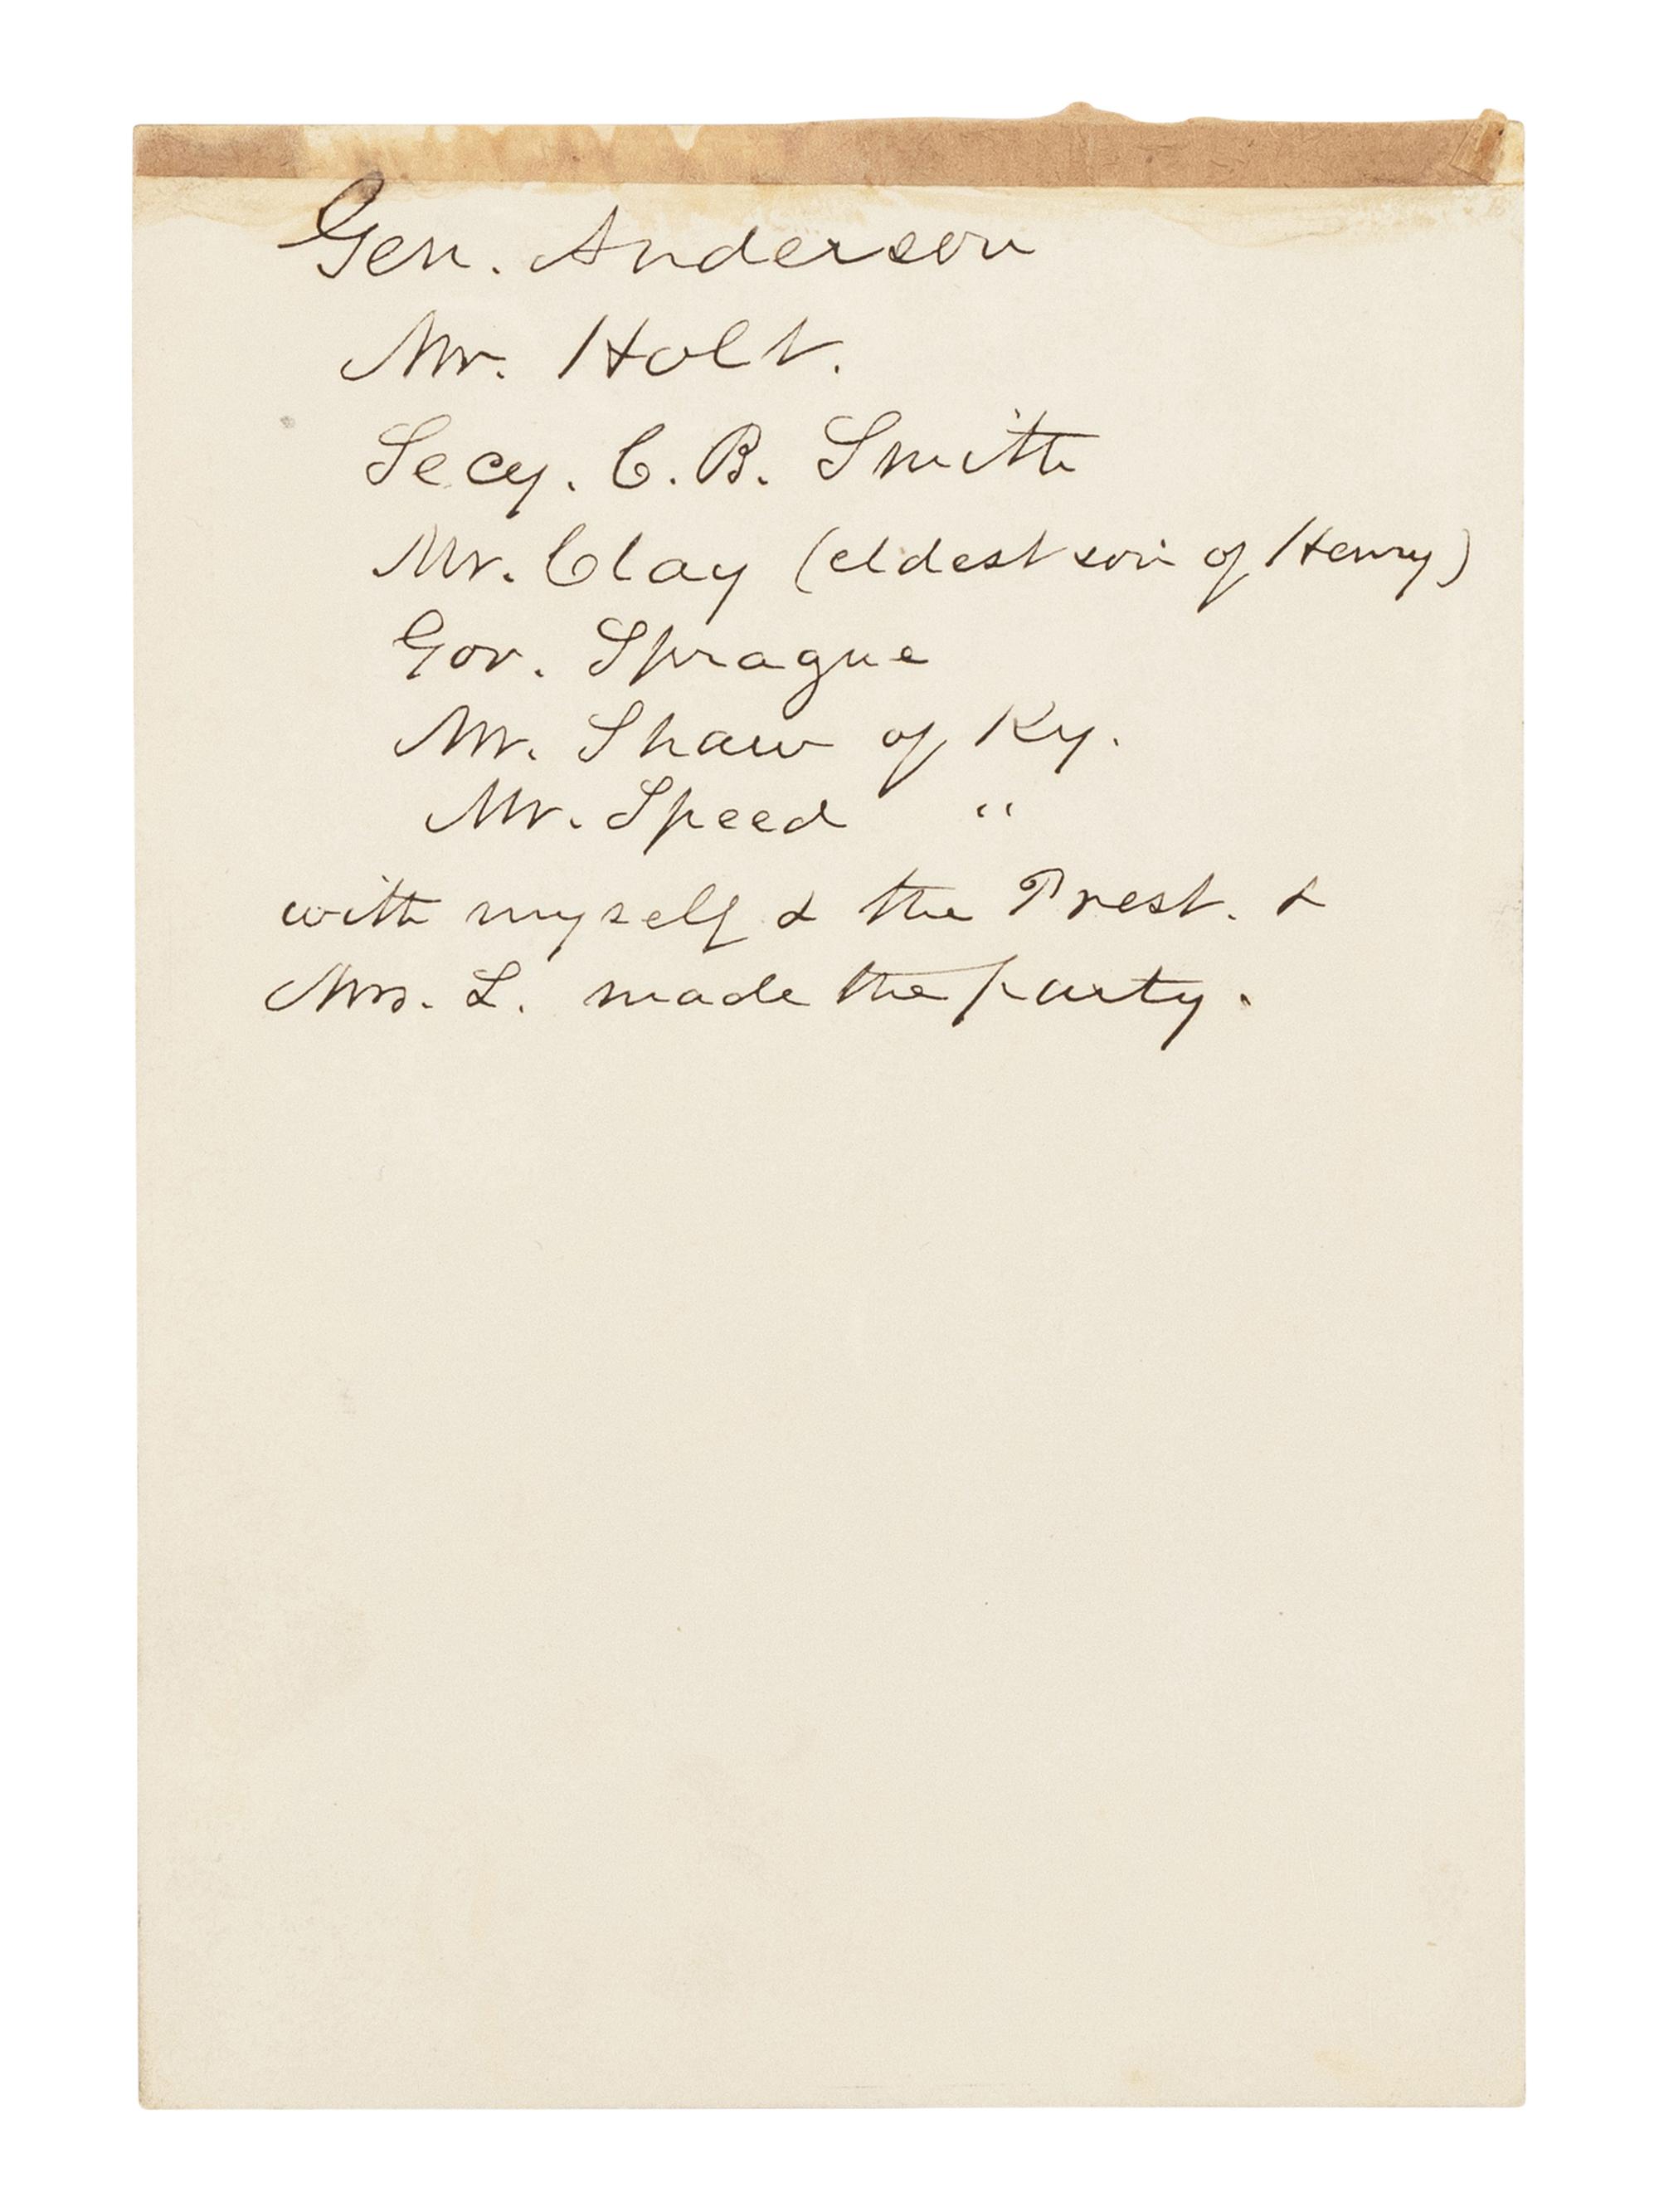 Gen. Anderson
Mr. Holt.
Secy. C. B. Smith
Mr. Clay (eldest son of Henry)
Gov. Sprague
Mr. Shaw of Ky.
Mr. Speed "
with myself & the Prest. &
Mrs. L. made the party.